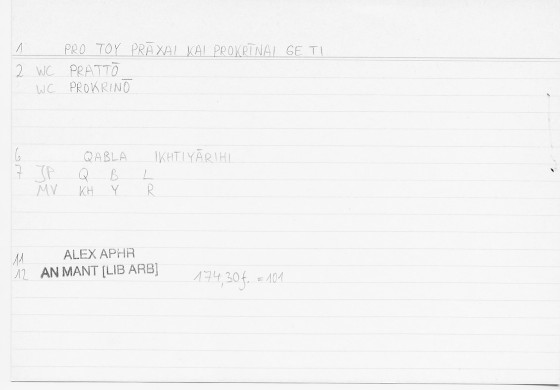 1 PRO TOY PRĀXAI KAI PROKRĪNAI GE TI
2 WC PRATTŌ
WC PROKRINŌ
6 QABLA IKHTIYĀRIHI
7 JP Q B L
MV KH Y R
11 ALEX APHR
12 AN MANT [LIB ARB] 174,30f. = 101